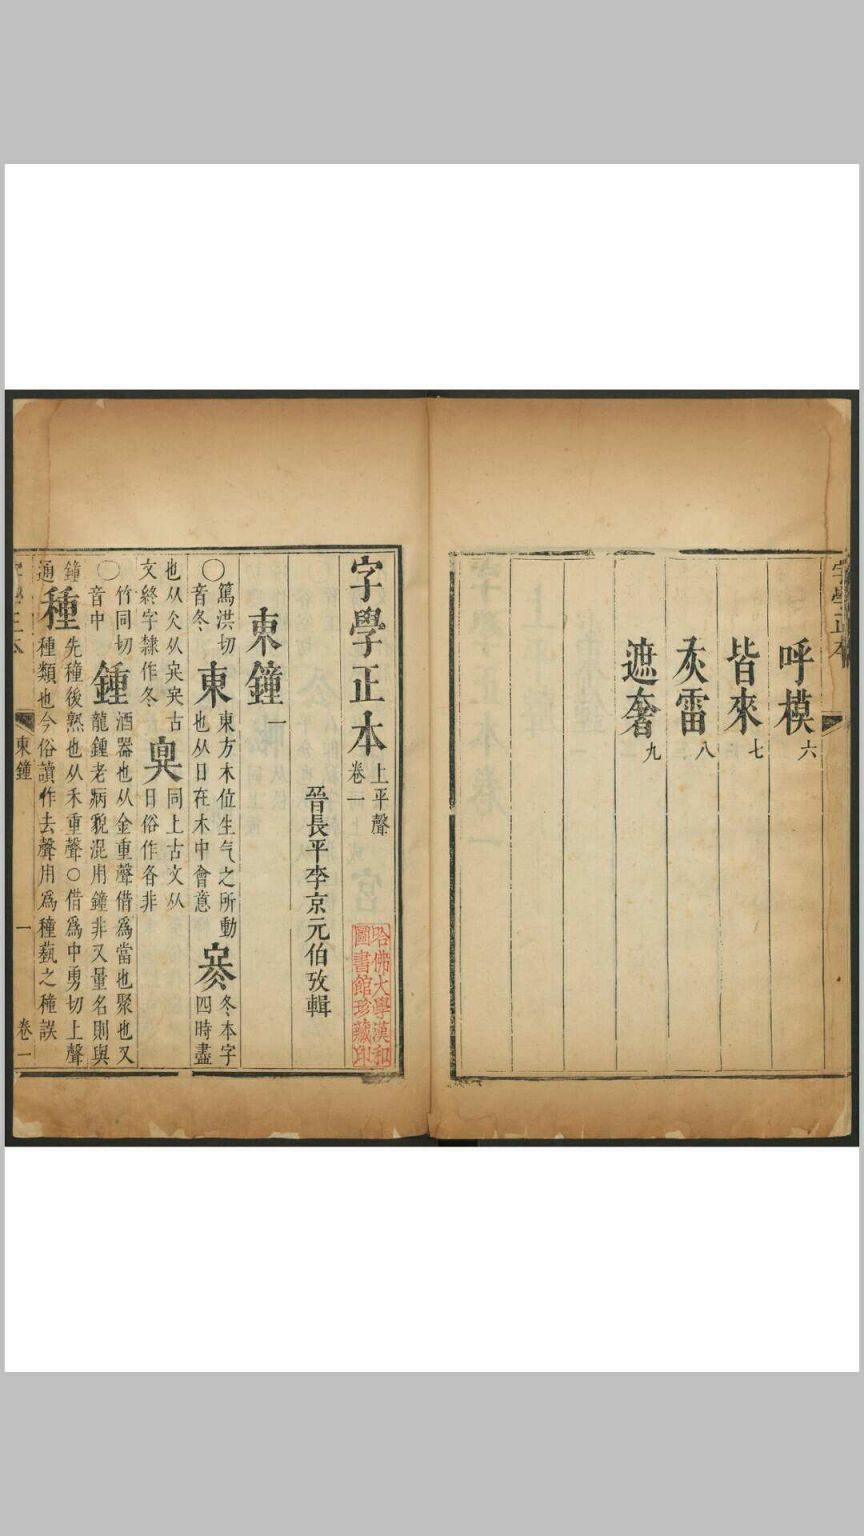 字學正本
呼模六
皆來七
灰雷八
遮奢九
字學正本 上平聲
卷一
哈佛大學漢和
圖書館珍藏印
晉長平李京元伯攷輯
東鐘一
○篤洪切
音冬
東
東方木位生气之所動
也从日在木中會意
冬本字
四時盡
也从仌从 古
文終字隸作冬
同上古文从
日俗作 非
○竹同切
音中
鍾
酒器也从金重聲借爲當也聚也又
龍鍾老病貌混用鐘非又量名則與
鐘
通
種
先穜後熟也从禾重聲○借爲中勇切上聲
種類也今俗讀作去聲用爲種蓺之種誤
字學正本 東鐘 一 卷一